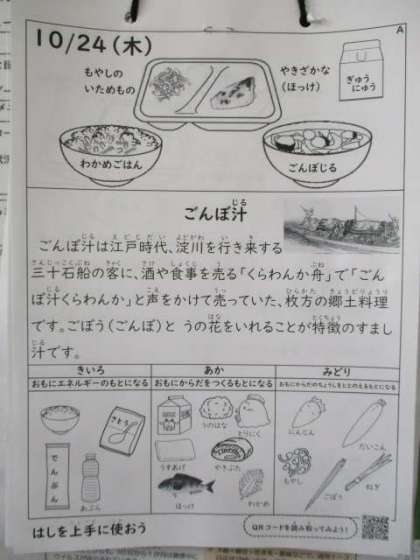 A
10/24(木)
もやしの
いためもの
やきざかな
(ほっけ)
ぎゅう
にゅう
わかめごはん
ごんぼじる
ごんぼ汁
ごんぼ汁は江戸時代、淀川を行き来する
三十石船の客に、酒や食事を売る「くらわんか舟」で「ごん
ぼ汁くらわんか」と声をかけて売っていた、枚方の郷土料理
です。ごぼう(ごんぼ)と うの花をいれることが特徴のすまし
汁です。
きいろ あか みどり
おもにエネルギーのもとになる おもにからだをつくるもとになる おもにからだのちょうしをととのえるもとになる
さとう
でんぷん
あぶら
うのはな
とりにく
うすあげ
やきぶた
ほっけ
わかめ
にんじん
だいこん
もやし
ごぼう
ねぎ
はしを上手に使おう
QRコードを読み取ってみよう!